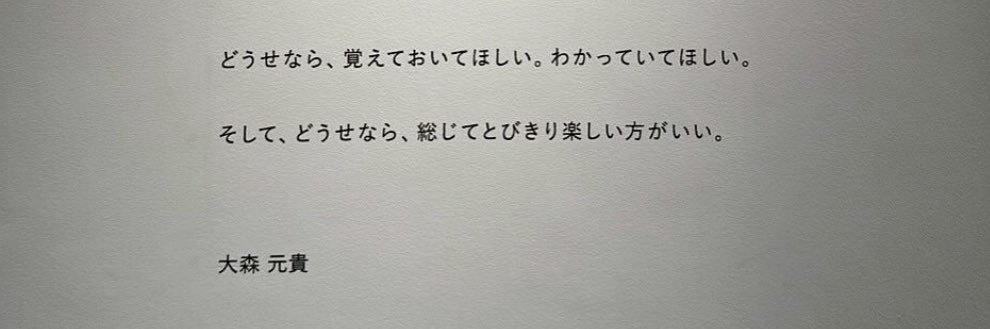 どうせなら、覚えておいてほしい。わかっていてほしい。
そして、どうせなら、総じてとびきり楽しい方がいい。
大森 元貴